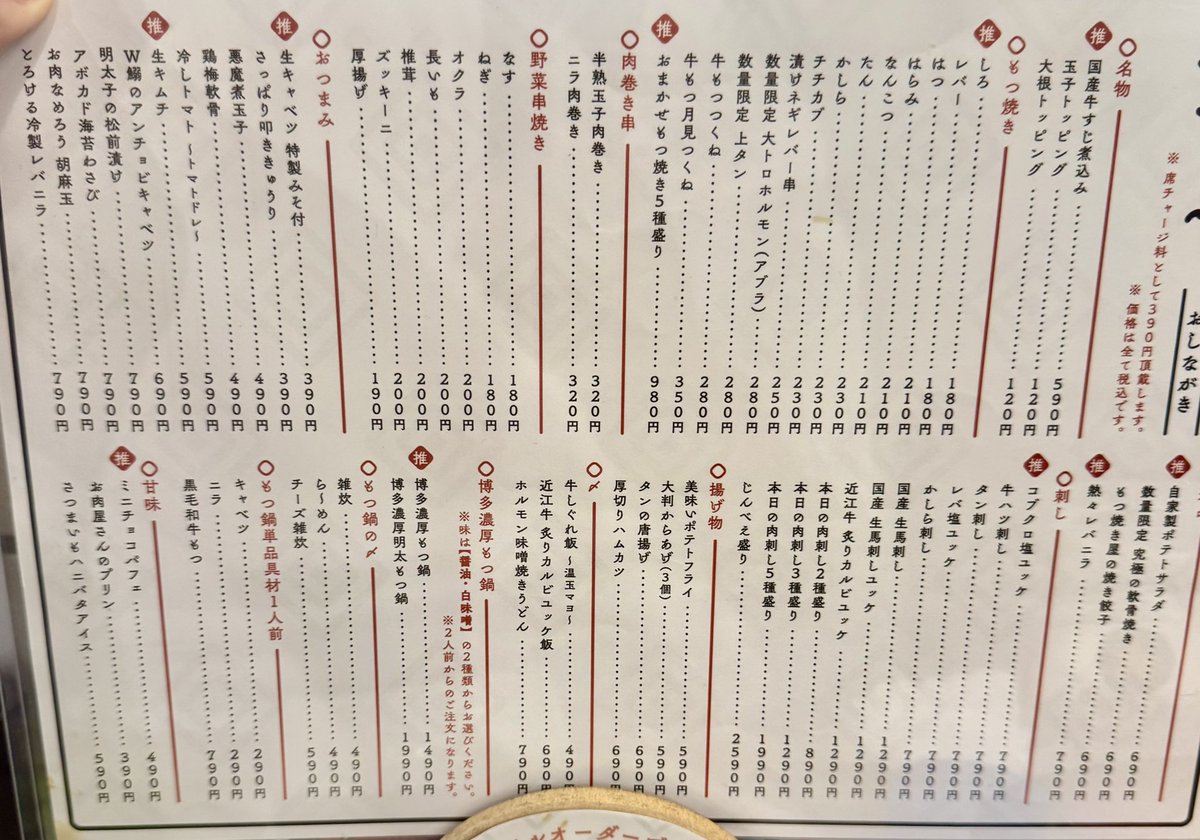 おしながき
※席チャージ料として390円頂戴します。
※価格は全て税込です。
名物
推 国産牛すじ煮込み 590円
玉子トッピング 120円
大根トッピング 120円
もつ焼き
推 しろ 180円
レバー 180円
はつ 210円
はらみ 210円
なんこつ 210円
たん 230円
かしら 230円
チチカブ 230円
漬けネギレバー串 250円
数量限定 大トロホルモン(アブラ) 280円
数量限定 上タン 280円
牛もつつくね 280円
牛もつ月見つくね 350円
推 おまかせもつ焼き5種盛り 980円
肉巻き串
半熟玉子肉巻き 320円
ニラ肉巻き 320円
野菜串焼き
なす 180円
ねぎ 180円
オクラ 200円
長いも 200円
椎茸 200円
ズッキーニ 200円
厚揚げ 190円
おつまみ
推 生キャベツ 特製みそ付 390円
さっぱり叩ききゅうり 390円
悪魔煮玉子 490円
鶏梅軟骨 490円
冷しトマト 〜トマトドレ〜 590円
推 生キムチ 590円
W鰯のアンチョビキャベツ 690円
明太子の松前漬け 790円
アボカド海苔わさび 790円
お肉なめろう 胡麻玉 790円
とろける冷製レバニラ 790円
推 自家製ポテトサラダ 690円
数量限定 究極の軟骨焼き 690円
推 もつ焼き屋の焼き餃子 690円
熱々レバニラ 790円
刺し
推 コブクロ塩ユッケ 790円
牛ハツ刺し 790円
タン刺し 790円
レバ塩ユッケ 790円
かしら刺し 790円
国産 生馬刺し 1290円
国産 生馬刺しユッケ 1290円
近江牛 炙りカルビユッケ 1290円
本日の肉刺し2種盛り 890円
本日の肉刺し3種盛り 1290円
本日の肉刺し5種盛り 1990円
じんべえ盛り 2590円
揚げ物
美味いポテトフライ 590円
大判からあげ(3個) 590円
タンの唐揚げ 690円
厚切りハムカツ 690円
〆
牛しぐれ飯 〜温玉マヨ〜 490円
近江牛 炙りカルビユッケ飯 690円
ホルモン味噌焼きうどん 790円
博多濃厚もつ鍋
※味は【醤油・白味噌】の2種類からお選びください。
※2人前からのご注文になります。
推 博多濃厚もつ鍋 1490円
博多濃厚明太もつ鍋 1990円
もつ鍋の〆
雑炊 490円
ら〜めん 490円
チーズ雑炊 590円
もつ鍋単品具材1人前
キャベツ 290円
ニラ 290円
黒毛和牛もつ 790円
甘味
推 ミニチョコパフェ 490円
お肉屋さんのプリン 390円
さつまいもハニバタアイス 590円
オーダー